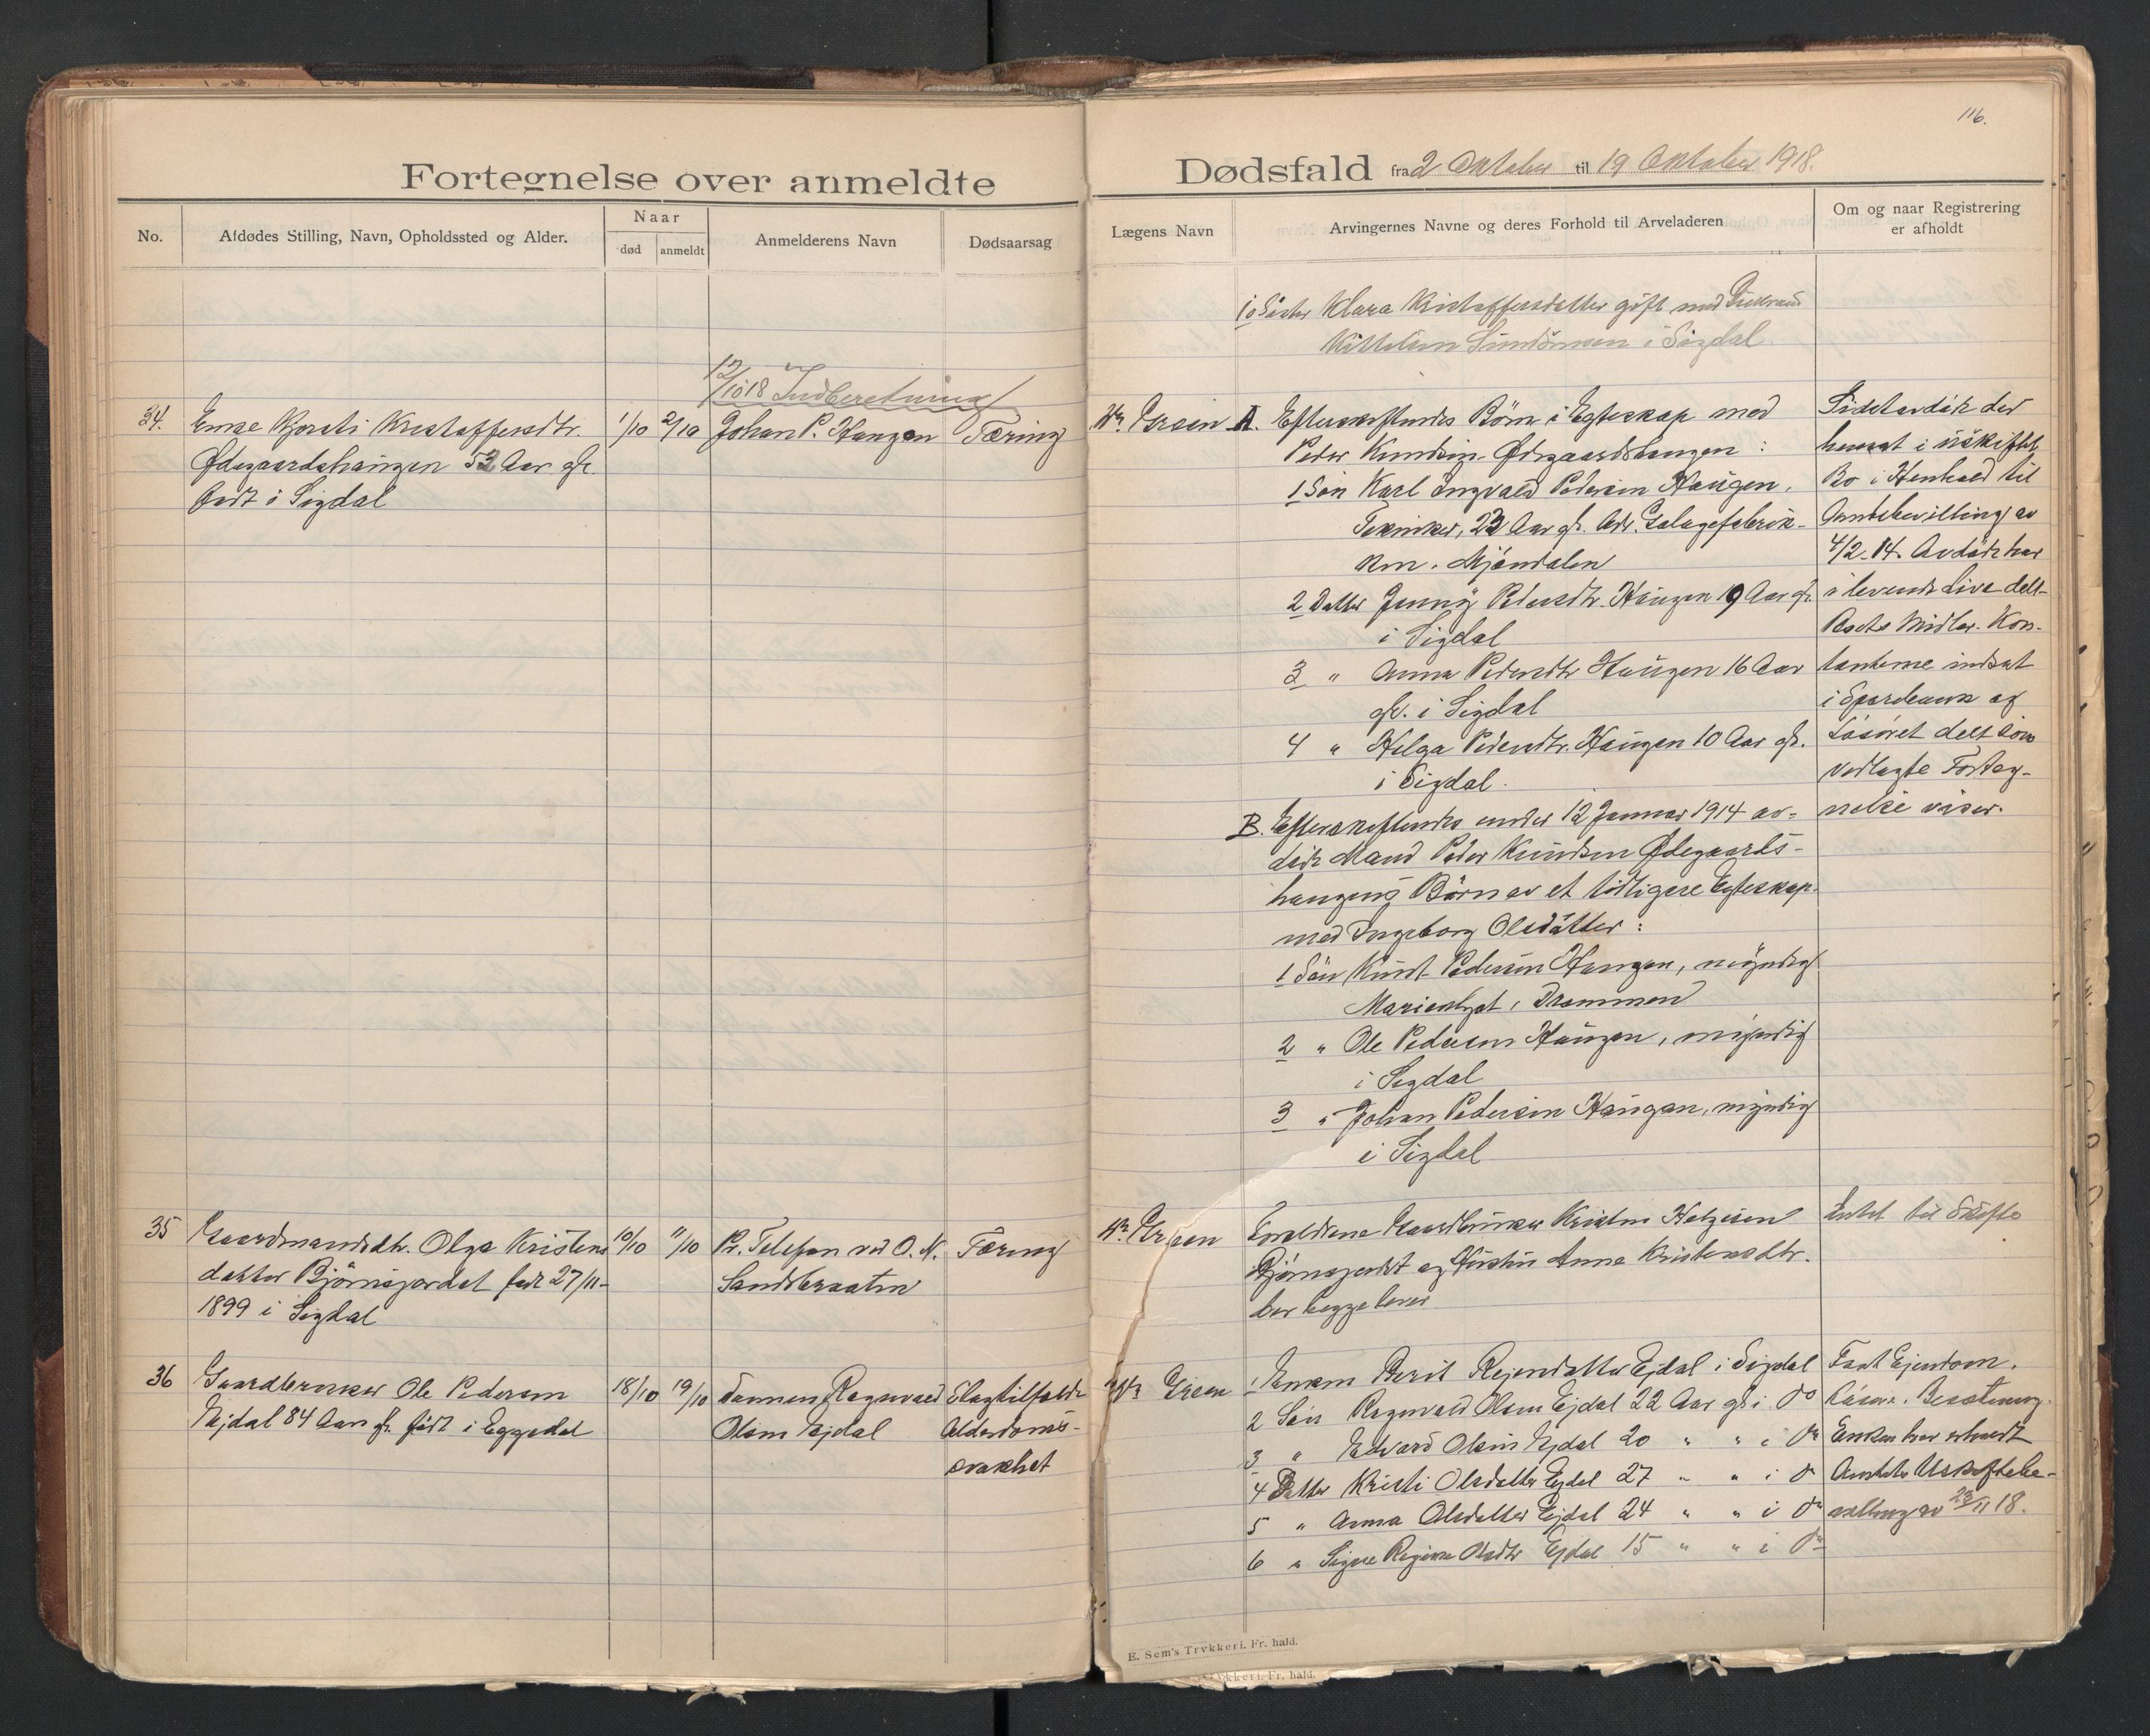 116.
Fortegnelse over anmeldte
Dødsfald fra 2 Oktober til 19 Oktober 1918.
No.
Afdødes Stilling, Navn, Opholdssted og Alder.
Naar
død
anmeldt
Anmelderens Navn
Dødsaarsag
Lægens Navn
Arvingernes Navne og deres Forhold til Arveladeren
Om og naar Registrering
er afholdt
10 Søster Klara Kristoffersdatter gift med
Kittelsen i Sigdal
12/10 18 Indberetning
34.
Enke Kjersti Kristoffersdtr.
Ødegaardshaugen 52 Aar gl.
født i Sigdal
1/10
2/10
Johan P. Haugen
Tæring
A. Efterskeftendes Børn i Egteskap med
Peder Knudsen Ødegaardshaugen :
1 Søn Karl Ingvald Pedersen Haugen,
Tekniker, 23 Aar gl. Adr. Galagefabrik-
ken. Mjøndalen
2 Datter Jenny Pedersdtr. Haugen 19 Aar gl.
i Sigdal
3 " Anna Pedersdtr Haugen 16 Aar
gl. i Sigdal
4 " Helga Pedersdtr. Haugen 10 Aar gl.
i Sigdal.
B. Efterskeftendes under 12 Januar 1914 av-
døde Mand Peder Knudsen Ødegaards-
haugens Børn av et tidligere Egteskap
med Ingeborg Olsdatter :
1 Søn Knut Pedersen Haugen, myndig
Marienlyst, Drammen
2 " Ole Pedersen Haugen, myndig
i Sigdal
3 " Johan Pedersen Haugen, myndig
i Sigdal
Sidstavdøde har
hensat i uskiftet
Bo i Henhold til
Amtsbevilling av
4/2-14. Avdøde har
i levende Live delt
Boets Midler. Kon-
tanterne indsat
i Sparebank og
Løsøret delt som
vedlagte Forteg-
nelse viser.
35
Gaardmandsdtr. Olga Kristens
datter Bjørnsjordet født 27/11-
1899 i Sigdal
10/10
11/10
Pr. Telefon ved O. N.
Sandsbraaten
Tæring
Forældrene Gaardbruker Kristen Helgesen
Bjørnsjordet og Hustru Anna Kristensdtr.
der begge lever
Intet til Skifte
36
Gaardbruker Ole Pedersen
Ejdal 84 Aar gl. født i Eggedal
18/10
19/10
Sønnen Ragnvald
Olsen Ejdal
Slagtilfælde
Alderdoms-
svakhet
1 Enken Berit Reiersdatter Ejdal i Sigdal
2 Søn Ragnvald Olsen Ejdal 22 Aar gl i do
3 " Edvard Olsen Ejdal 20 " " i do
4 Datter Kristi Olsdatter Ejdal 27 " " i do
5 " Anna Olsdatter Ejdal 24 " " i do
6 " Signe Regine Olsdtr Ejdal 15 " " i do
Fast Ejendom.
Løsøre. Besætning.
Enken har erholdt
Amtets Uskiftebe-
villing av 23/11 18.
E. Sem's Trykkeri. Fr. hald.
Trykkeri. Fr. hald.